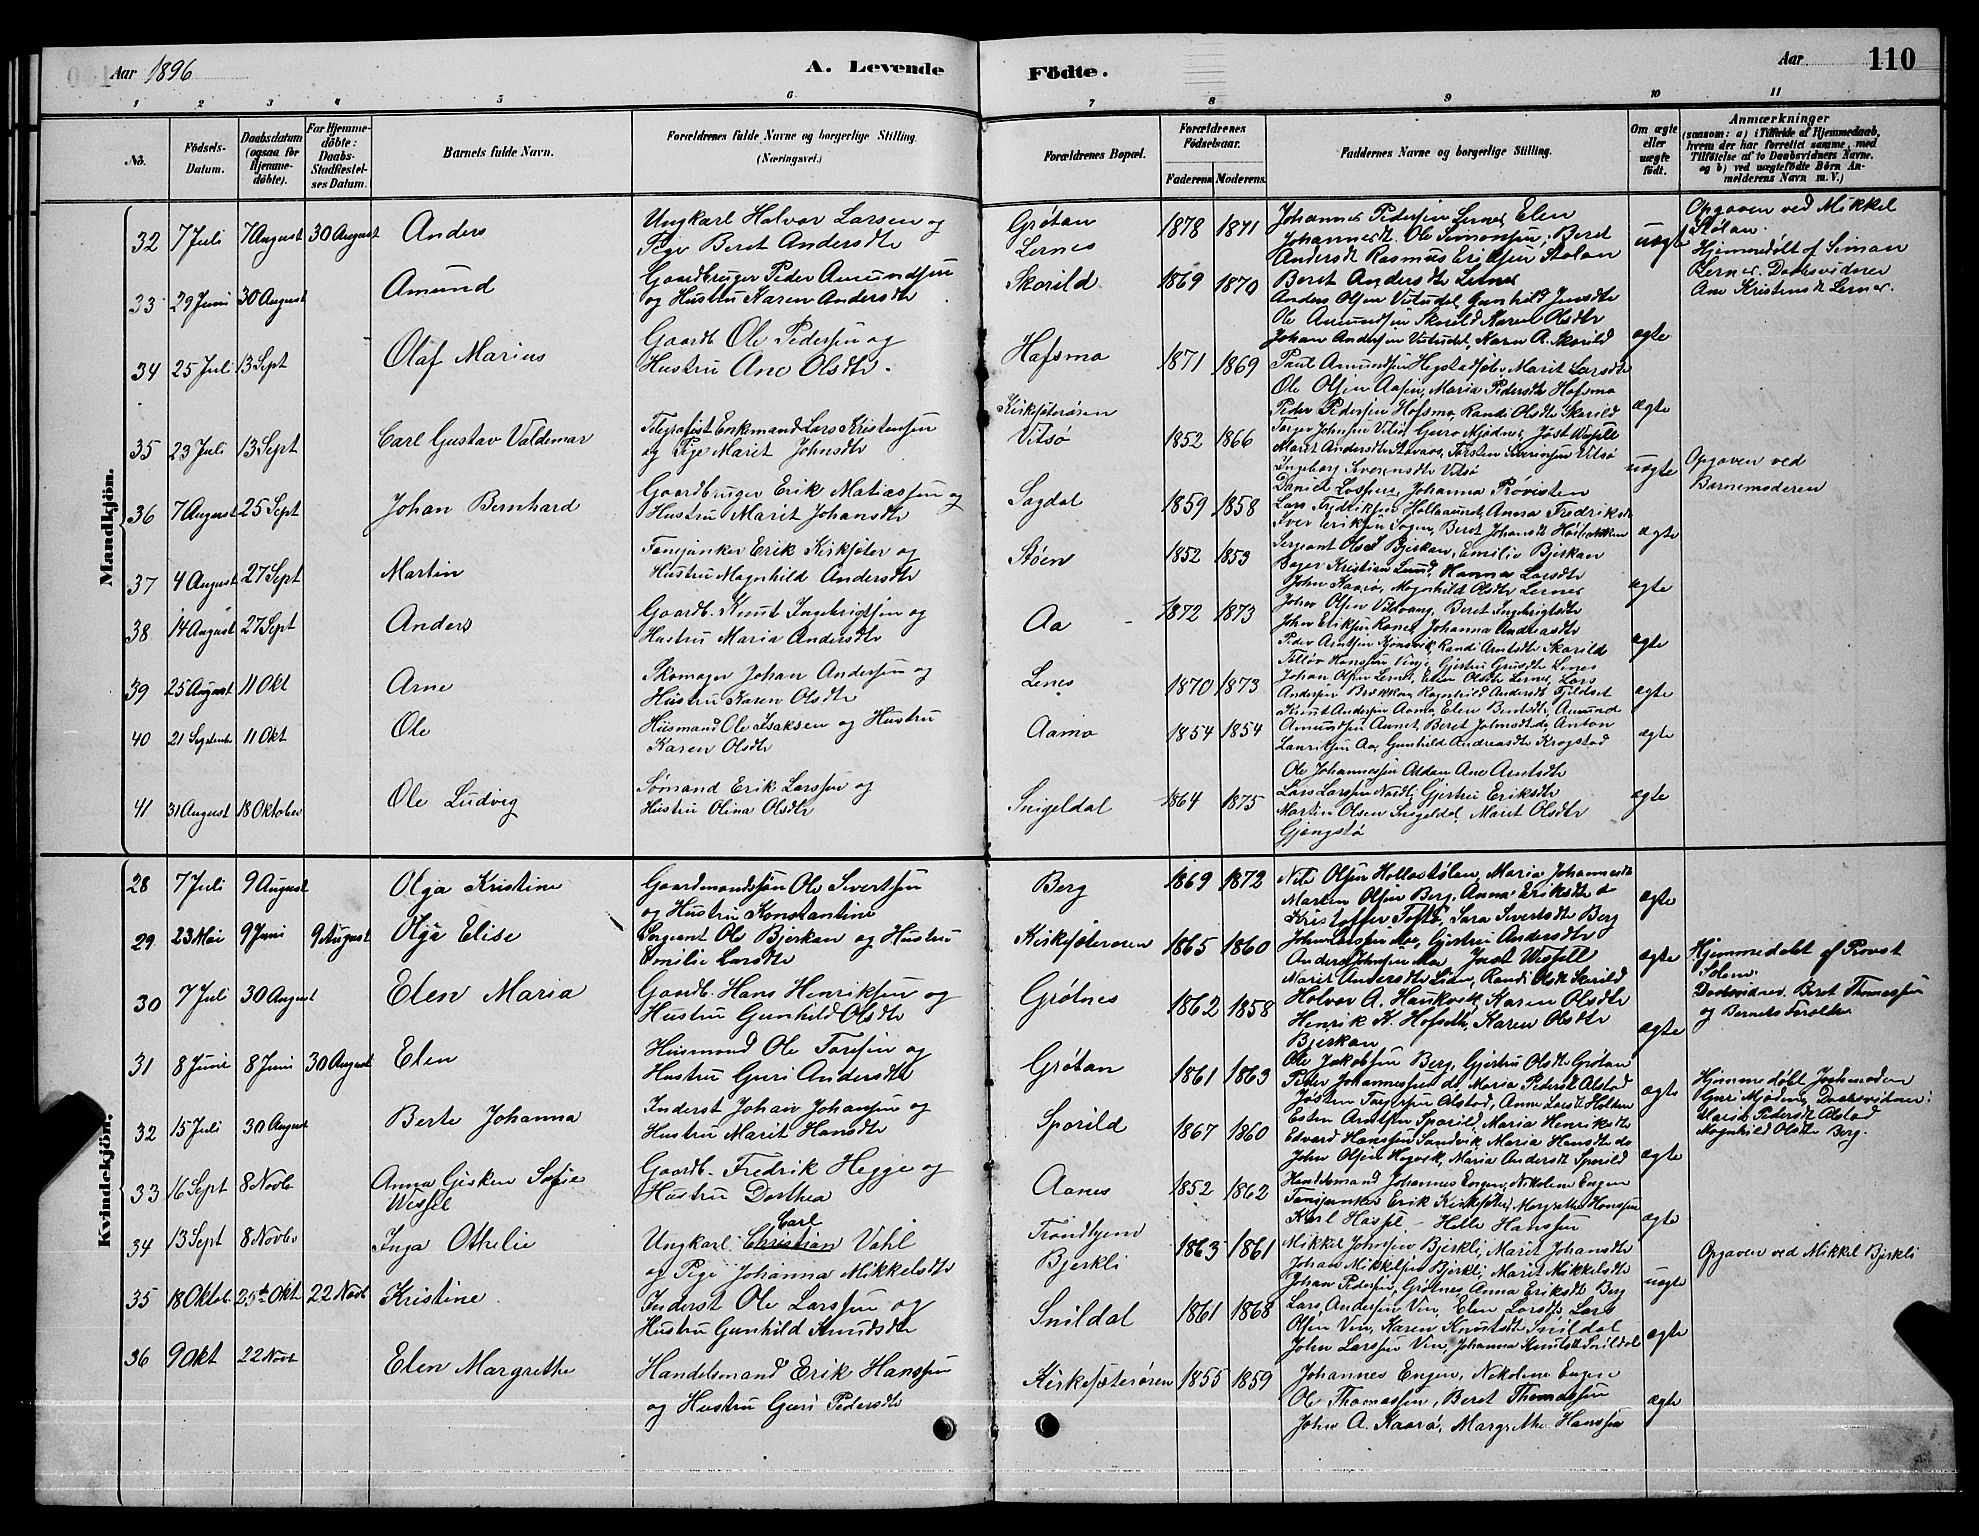 Aar 1896
A. Levende Födte.
Aar
110
1 2 3 4 5 6 7 8 9 10 11
No.
Födsels-Datum.
Daabsdatum (ogsaa for Hjemme-döbte).
For Hjemme-döbte: Daabs-Stadfæstel-ses Datum.
Barnets fulde Navn.
Forældrenes fulde Navne og borgerlige Stilling. (Næringsvei.)
Forældrenes Bopæl.
Forældrenes Födselsaar.
Faderens Moderens
Faddernes Navne og borgerlige Stilling.
Om ægte eller uægte födt.
Anmærkninger
(saasom: a) i Tilfælde af Hjemmedaab, hvem der har forrettet samme, med Tilföielse af to Daabsvidners Navne. og b) ved uægtefödte Börn Anmelderens Navn m. V.)
Mandkjön.
32 7 Juli 7 August 30 August Anders
Ungkarl Halvor Larsen og
Pige Beret Andersdtr
Grøtan
Lernes
1878 1871
Johannes Pedersen Lernes, Elen
Johannesdt. Ole Simonsen, Beret
Andersdt Rasmus Eriksen Stølan
uægte
Opgaven ved Mikkel
Stølan.
Hjemmedøbt af Simon
Lernes. Daabsvidner
Ane Kristensdt Lernes.
33 29 Juni 30 August Amund
Gaardbruger Peder Amundsen
og Hustru Karen Andersdtr
Skarild
1869 1870
Beret Andersdtr Lernes
Anders Olsen Vitsdal, Gunhild Jensdtr
Ole Amundsen Skarild Maren Olsdtr
Johan Andersen Vitsdal, Karen A. Skarild
ægte
34 25 Juli 13 Sept Olaf Marius
Gaardb. Ole Pedersen og
Hustru Ane Olsdtr.
Hafsmo
1871 1869
Paul Amundsen Hegstadsølen, Marit Larsdtr
Ole Olsen Aasen, Maria Pedersdtr Hafsmo
Peder Pedersen Hofsmo, Randi Olsdtr Skarild
ægte
35 23 Juli 13 Sept Carl Gustav Valdemar
Telegrafist Enkemand Lars Kristensen
og Pige Marit Johnsdtr
Kirksæterøren
Vitsø
1852 1866
Torger Johnsen Vitsø, Guro Mjødnes, Jøst Wessell
Marit Andersdtr Stavaas, Torsten Severinsen Vitsø
Ingeborg Svensdtr Vitsø
uægte
Opgaven ved
Barnemoderen
36 7 August 25 Sept Johan Bernhard
Gaardbruger Erik Matiassen og
Hustru Marit Johansdtr
Sagdal
1859 1858
Johanna Prøvesten
Lars Fredriksen Hollaunet, Anna Fredriksdt
Iver Eriksen Sogen, Beret Johansdt
ægte
37 4 August 27 Sept Martin
Fanejunker Erik Kirksæter og
Hustru Magnhild Andersdtr
Støen
1852 1853
Sergeant Ole Bjerkan, Emilie Bjerkan
Bager Kristian Lund, Hanna Larsdtr
John Kaarø, Magnhild Olsdtr Lernes
ægte
38 14 August 27 Sept Anders
Gaardb. Knut Ingebrigtsen og
Hustru Maria Andersdtr
Aa
1872 1873
John Olsen Vildvang, Beret Ingebrigtsdtr
John Eriksen Ranes, Johanna Andreasdtr
Peder Arntsen, Randi Arntsdtr Skarild
ægte
39 25 August 11 Okt Arne
Skomager Johan Andersen og
Hustru Karen Olsdtr
Lenes
1870 1873
Tellev Hanssen Vinje, Gjertru Lenes
Johan Olsen Lernes, Elen Olsdtr Lernes, Lars
Andersen Brækken, Ragnhild Andersdt Fjeldset
ægte
40 21 Septemb 11 Okt Ole
Husmand Ole Isaksen og Hustru
Karen Olsdtr
Aamo
1854 1854
Knut Andersen Aamo, Elen Bentsdt, Amund
Amundsen Aunet, Beret Johnsdt do, Anton
Lauritsen Aa, Gunhild Andreasdtr Krogstad
ægte
41 31 August 18 Oktober Ole Ludvig
Sømand Erik Larssen og
Hustru Olina Olsdtr
Snigeldal
1864 1875
Ole Johannessen Aldan Ane Arntsdtr
Lars Larssen Nordli, Gjertru Eriksdtr
Martin Olsen Snigeldal, Maret Olsdtr
Gjengstø
ægte
Kvindekjön.
28 7 Juli 9 August Olga Kristine
Gaardmandssøn Ole Sivertsen
og Hustru Konstantine
Berg
1869 1872
Nils Olsen Hollastølen, Maria Johannesdt
Marten Olsen Berg, Anna Eriksdtr do
Kristoffer Toftø, Sara Sivertsdt Berg
ægte
29. 23 Mai 9 Juni 9 August Olga Elise
Sergeant Ole Bjerkan og Hustru
Emilie Larsdtr
Kirksæterøren
1865 1860
John Larssen Moe, Gjertru Andersdtr
Anders Johnsen Moe, Jøst Wessell
Marit Andersdtr Lian, Randi Olsdt Skarild
ægte
Hjemmedøbt af Provst
Solem.
Daabsvidner. Beret Thomassen
og Barnets Forældre
30 7 Juli 30 August Elen Maria
Gaardb. Hans Henriksen og
Hustru Gunhild Olsdtr
Grøtnes
1862 1858
Halvor A. Haukvik, Karen Olsdtr
Henrik K. Hofseth, Karen Olsdtr
Bjerkan
ægte
31 8 Juni 8 Juni 30 August Elen
Husmand Ole Toresen og
Hustru Guri Andersdtr
Grøtan
1861 1863
Ole Jakobsen Berg, Gjertru Olsdtr Grøtan
Peter Johannessen do, Maria Pedersdt Alstad
Jøsten Torgersen Alstad, Anne Larsdt Holten
ægte
Hjemmedøbt Jordmoderen
Guri Mjødnes, Daabsvidner:
Maria Pedersdt Alstad
Magnhild Olsdtr Berg.
32 15 Juli 30 August Berte Johanna
Inderst Johan Johansen og
Hustru Marit Hansdtr
Sporild
1867 1860
Esten Arntsen Sporild, Maria Henriksdtr
Edvard Hanssen Sandvik, Maria Hansdtr do
John Olsen Hagvik, Maria Andersdt Sporild
ægte
33 16 Sept 8 Novb Anna Gisken Sofie
Wessel
Gaardb. Fredrik Hegge og
Hustru Dorthea
Aanes
1852 1862
Handelsmand Johannes Engen, Nikoline Engen
Fanejunker Erik Kirksæter, Margrethe Hanssen
Karl Hassel - Helle Hanssen
ægte
34 13 Sept 8 Novbr Inga Othelie
Carl
Ungkarl Christian Vahl
og Pige Johanna Mikkelsdtr
Trondhjem
Bjerkli
1863 1861
Mikkel Johnsen Bjerkli, Marit Johansdtr
Johan Mikkelsen Bjerkli, Marit Mikkelsdtr
Johan Pedersen, Grøtnes, Anna Eriksdt Berg
uægte
Opgaven ved Mikkel Bjerkli
35 18 Oktob. 25de Okt 22 Novb Kristine
Inderst Ole Larssen og
Hustru Gunhild Knudsdtr
Snildal
1861 1868
Lars Andersen Vin, Elen Larsdtr, Lars
Olsen Vin, Karen Knutsdt Snildal,
John Larssen Vin, Johanna Knutsdt Snildal
ægte
36 9 Okt 22 Novb Elen Margrethe
Handelsmand Erik Hanssen
og Hustru Guri Pedersdtr
Kirkesæterøren
1855 1859
Johannes Engen, Nikoline Engen
Ole Thomassen, Beret Thomassen
John A. Kaarø, Margrethe Hanssen
ægte